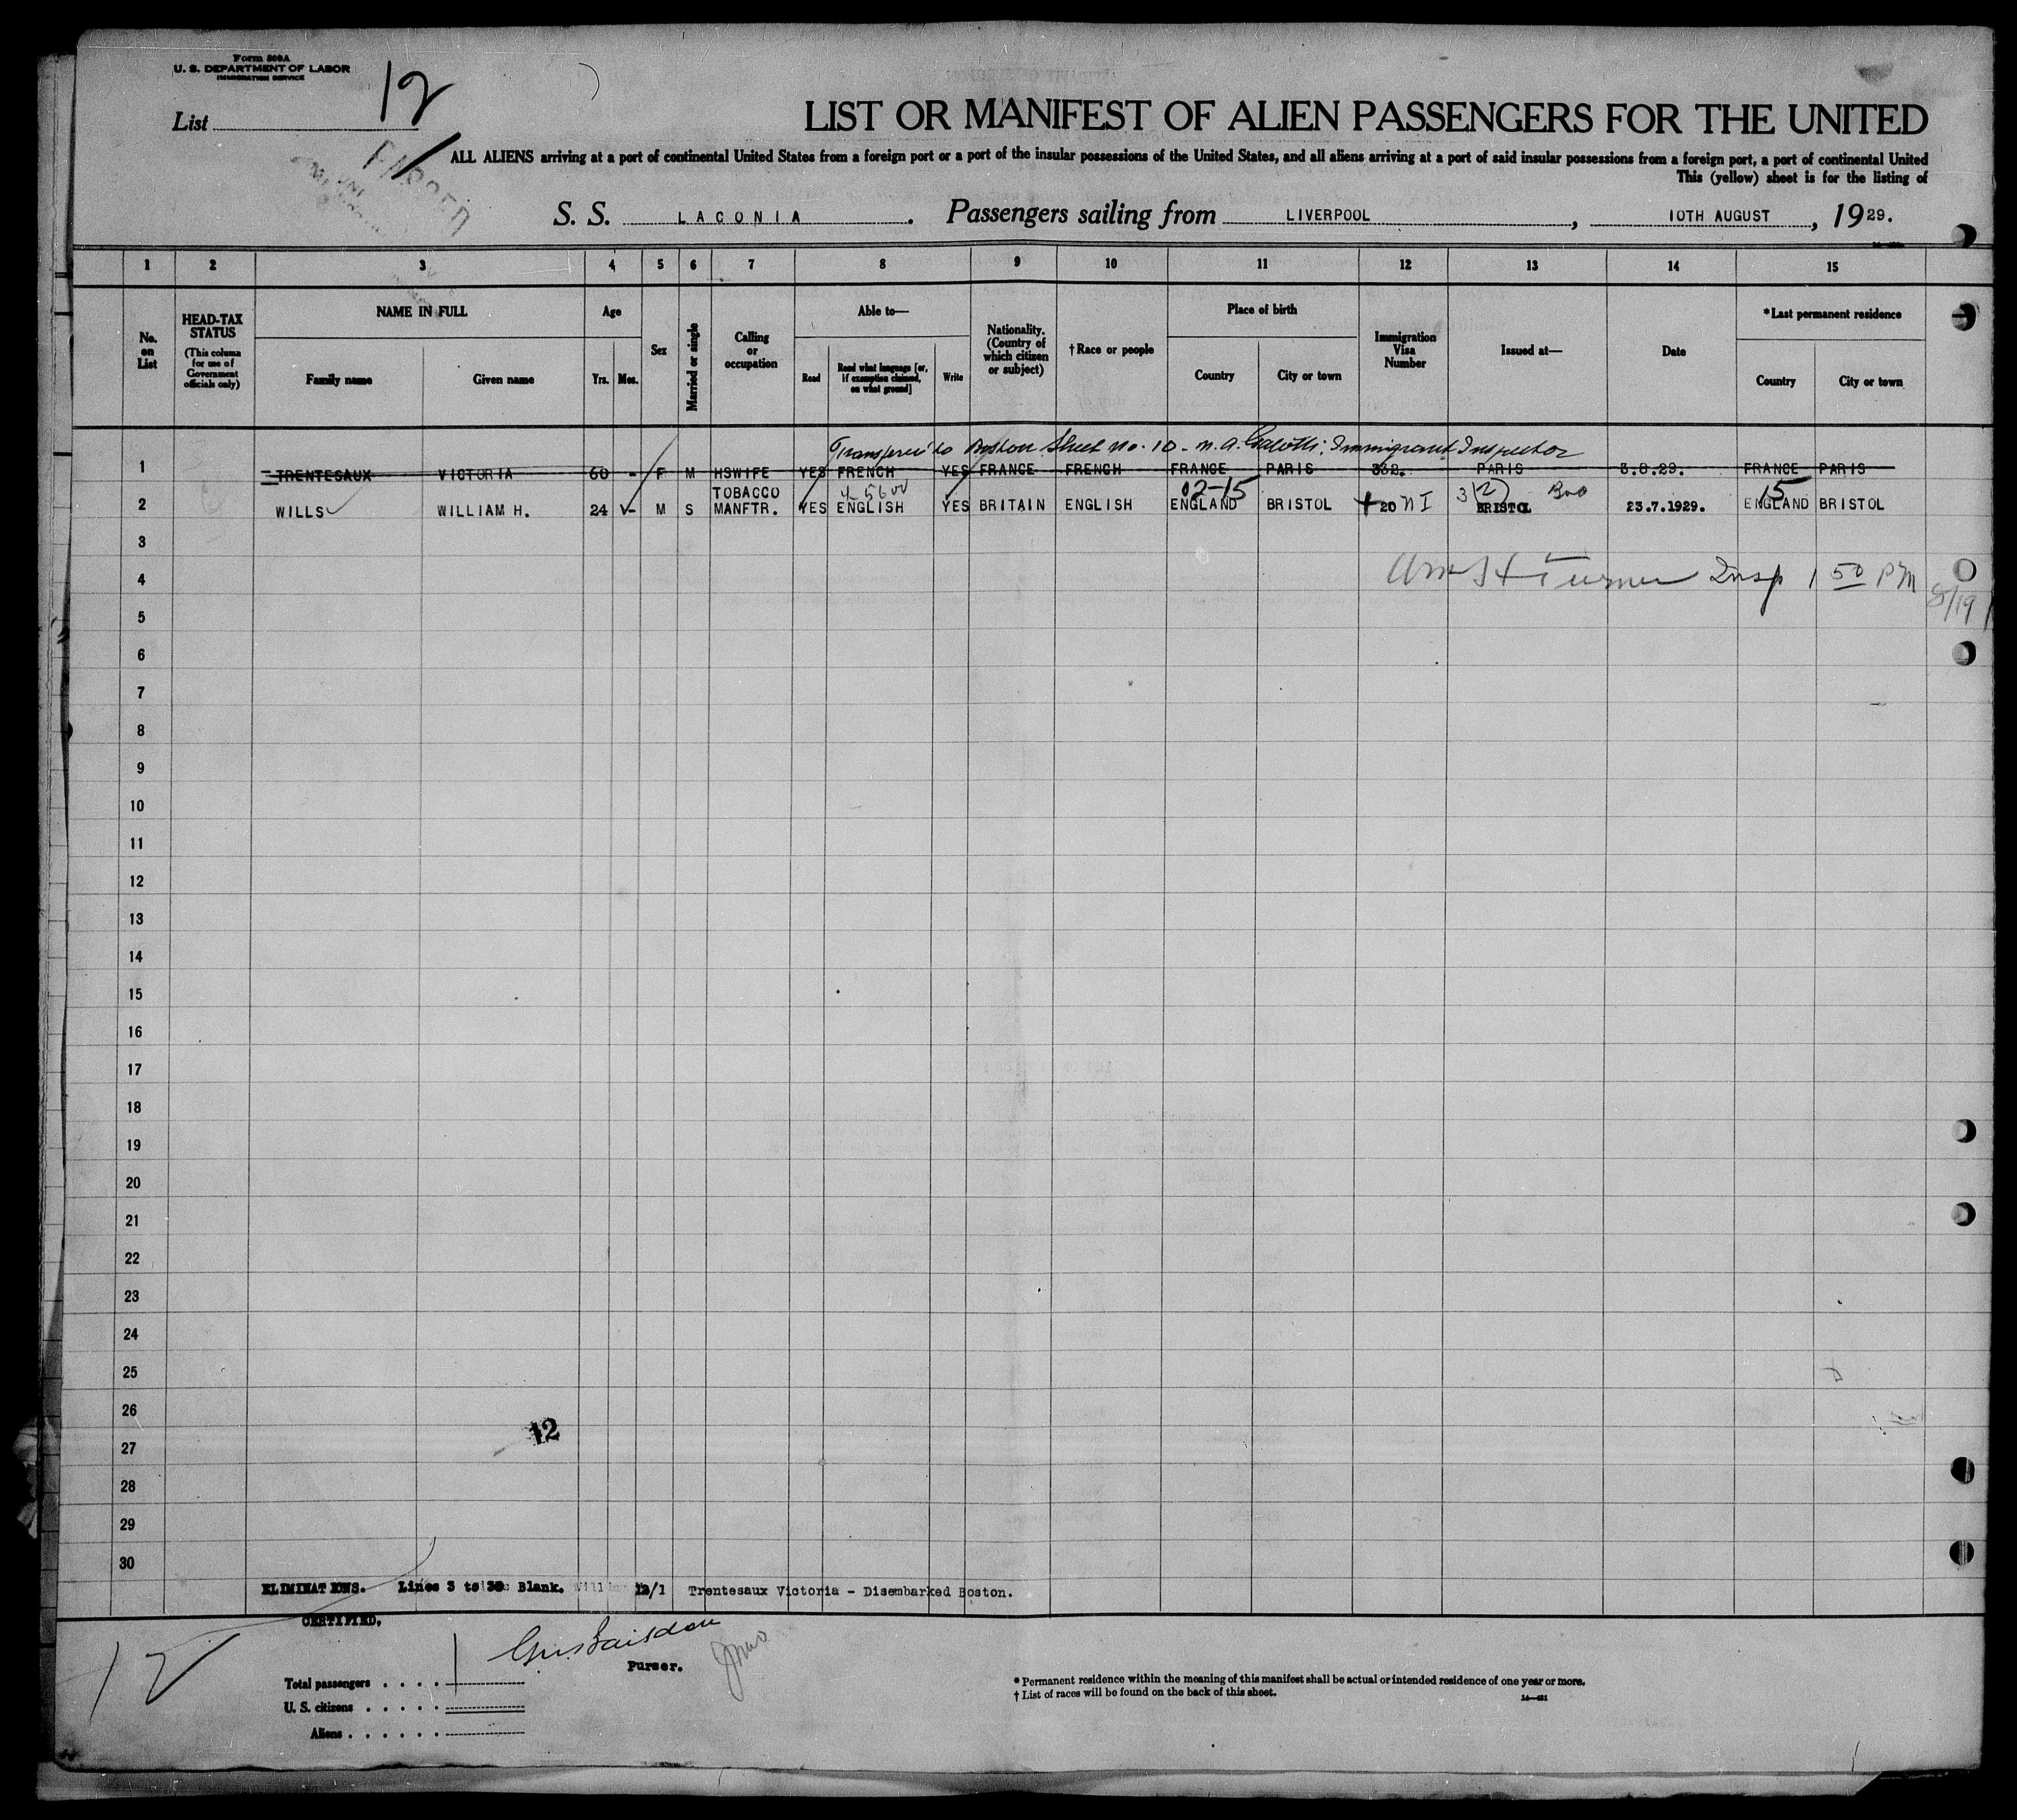 Form 500A
U. S. DEPARTMENT OF LABOR
IMMIGRATION SERVICE
List 12
LIST OR MANIFEST OF ALIEN PASSENGERS FOR THE UNITED
ALL ALIENS arriving at a port of continental United States from a foreign port or a port of the insular possessions of the United States, and all aliens arriving at a port of said insular possessions from a foreign port, a port of continental United
This (yellow) sheet is for the listing of
PASSED
S. S. LACONIA. Passengers sailing from LIVERPOOL, 10TH AUGUST, 1929.
1 2 3 4 5 6 7 8 9 10 11 12 13 14 15
No. on List
HEAD-TAX STATUS
(This column for use of Government officials only)
NAME IN FULL
Family name
Given name
Age
Yrs.
Mos.
Sex
Married or single
Calling or occupation
Able to—
Read
Read what language [or, if exemption claimed, on what ground]
Write
Nationality. (Country of which citizen or subject)
† Race or people
Place of birth
Country
City or town
Immigration Visa Number
Issued at—
Date
*Last permanent residence
Country
City or town
Transferred to Boston Sheet No. 10 - Immigrant Inspector
1 TRENTESAUX VICTORIA 60 - F M HSWIFE YES FRENCH YES FRANCE FRENCH FRANCE PARIS 332. PARIS 3.8.29. FRANCE PARIS
02-15 15
2 WILLS WILLIAM H. 24 - M S TOBACCO MANFTR. YES ENGLISH YES BRITAIN ENGLISH ENGLAND BRISTOL 20 NI BRISTOL 23.7.1929. ENGLAND BRISTOL
3
4 Turner Insp 1 50 PM
8/19
5
6
7
8
9
10
11
12
13
14
15
16
17
18
19
20
21
22
23
24
25
26
12
27
28
29
30
ELIMINATIONS. Lines 3 to 30 Blank. 12/1 Trentesaux Victoria - Disembarked Boston.
CERTIFIED.
12
Purser.
Total passengers
U. S. citizens
Aliens
* Permanent residence within the meaning of this manifest shall be actual or intended residence of one year or more.
† List of races will be found on the back of this sheet.